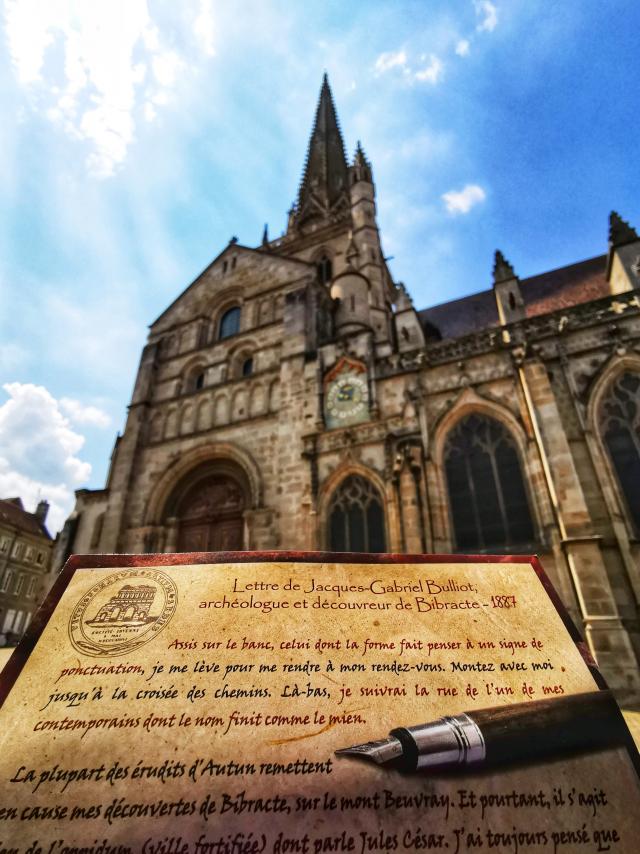 Lettre de Jacques-Gabriel Bulliot,
archéologue et découvreur de Bibracte - 1887
Assis sur le banc, celui dont la forme fait penser à un signe de
ponctuation, je me lève pour me rendre à mon rendez-vous. Montez avec moi
jusqu'à la croisée des chemins. Là-bas, je suivrai la rue de l'un de mes
contemporains dont le nom finit comme le mien.
La plupart des érudits d'Autun remettent
en cause mes découvertes de Bibracte, sur le mont Beuvray. Et pourtant, il s'agit
de l'oppidum (ville fortifiée) dont parle Jules César. J'ai toujours pensé que